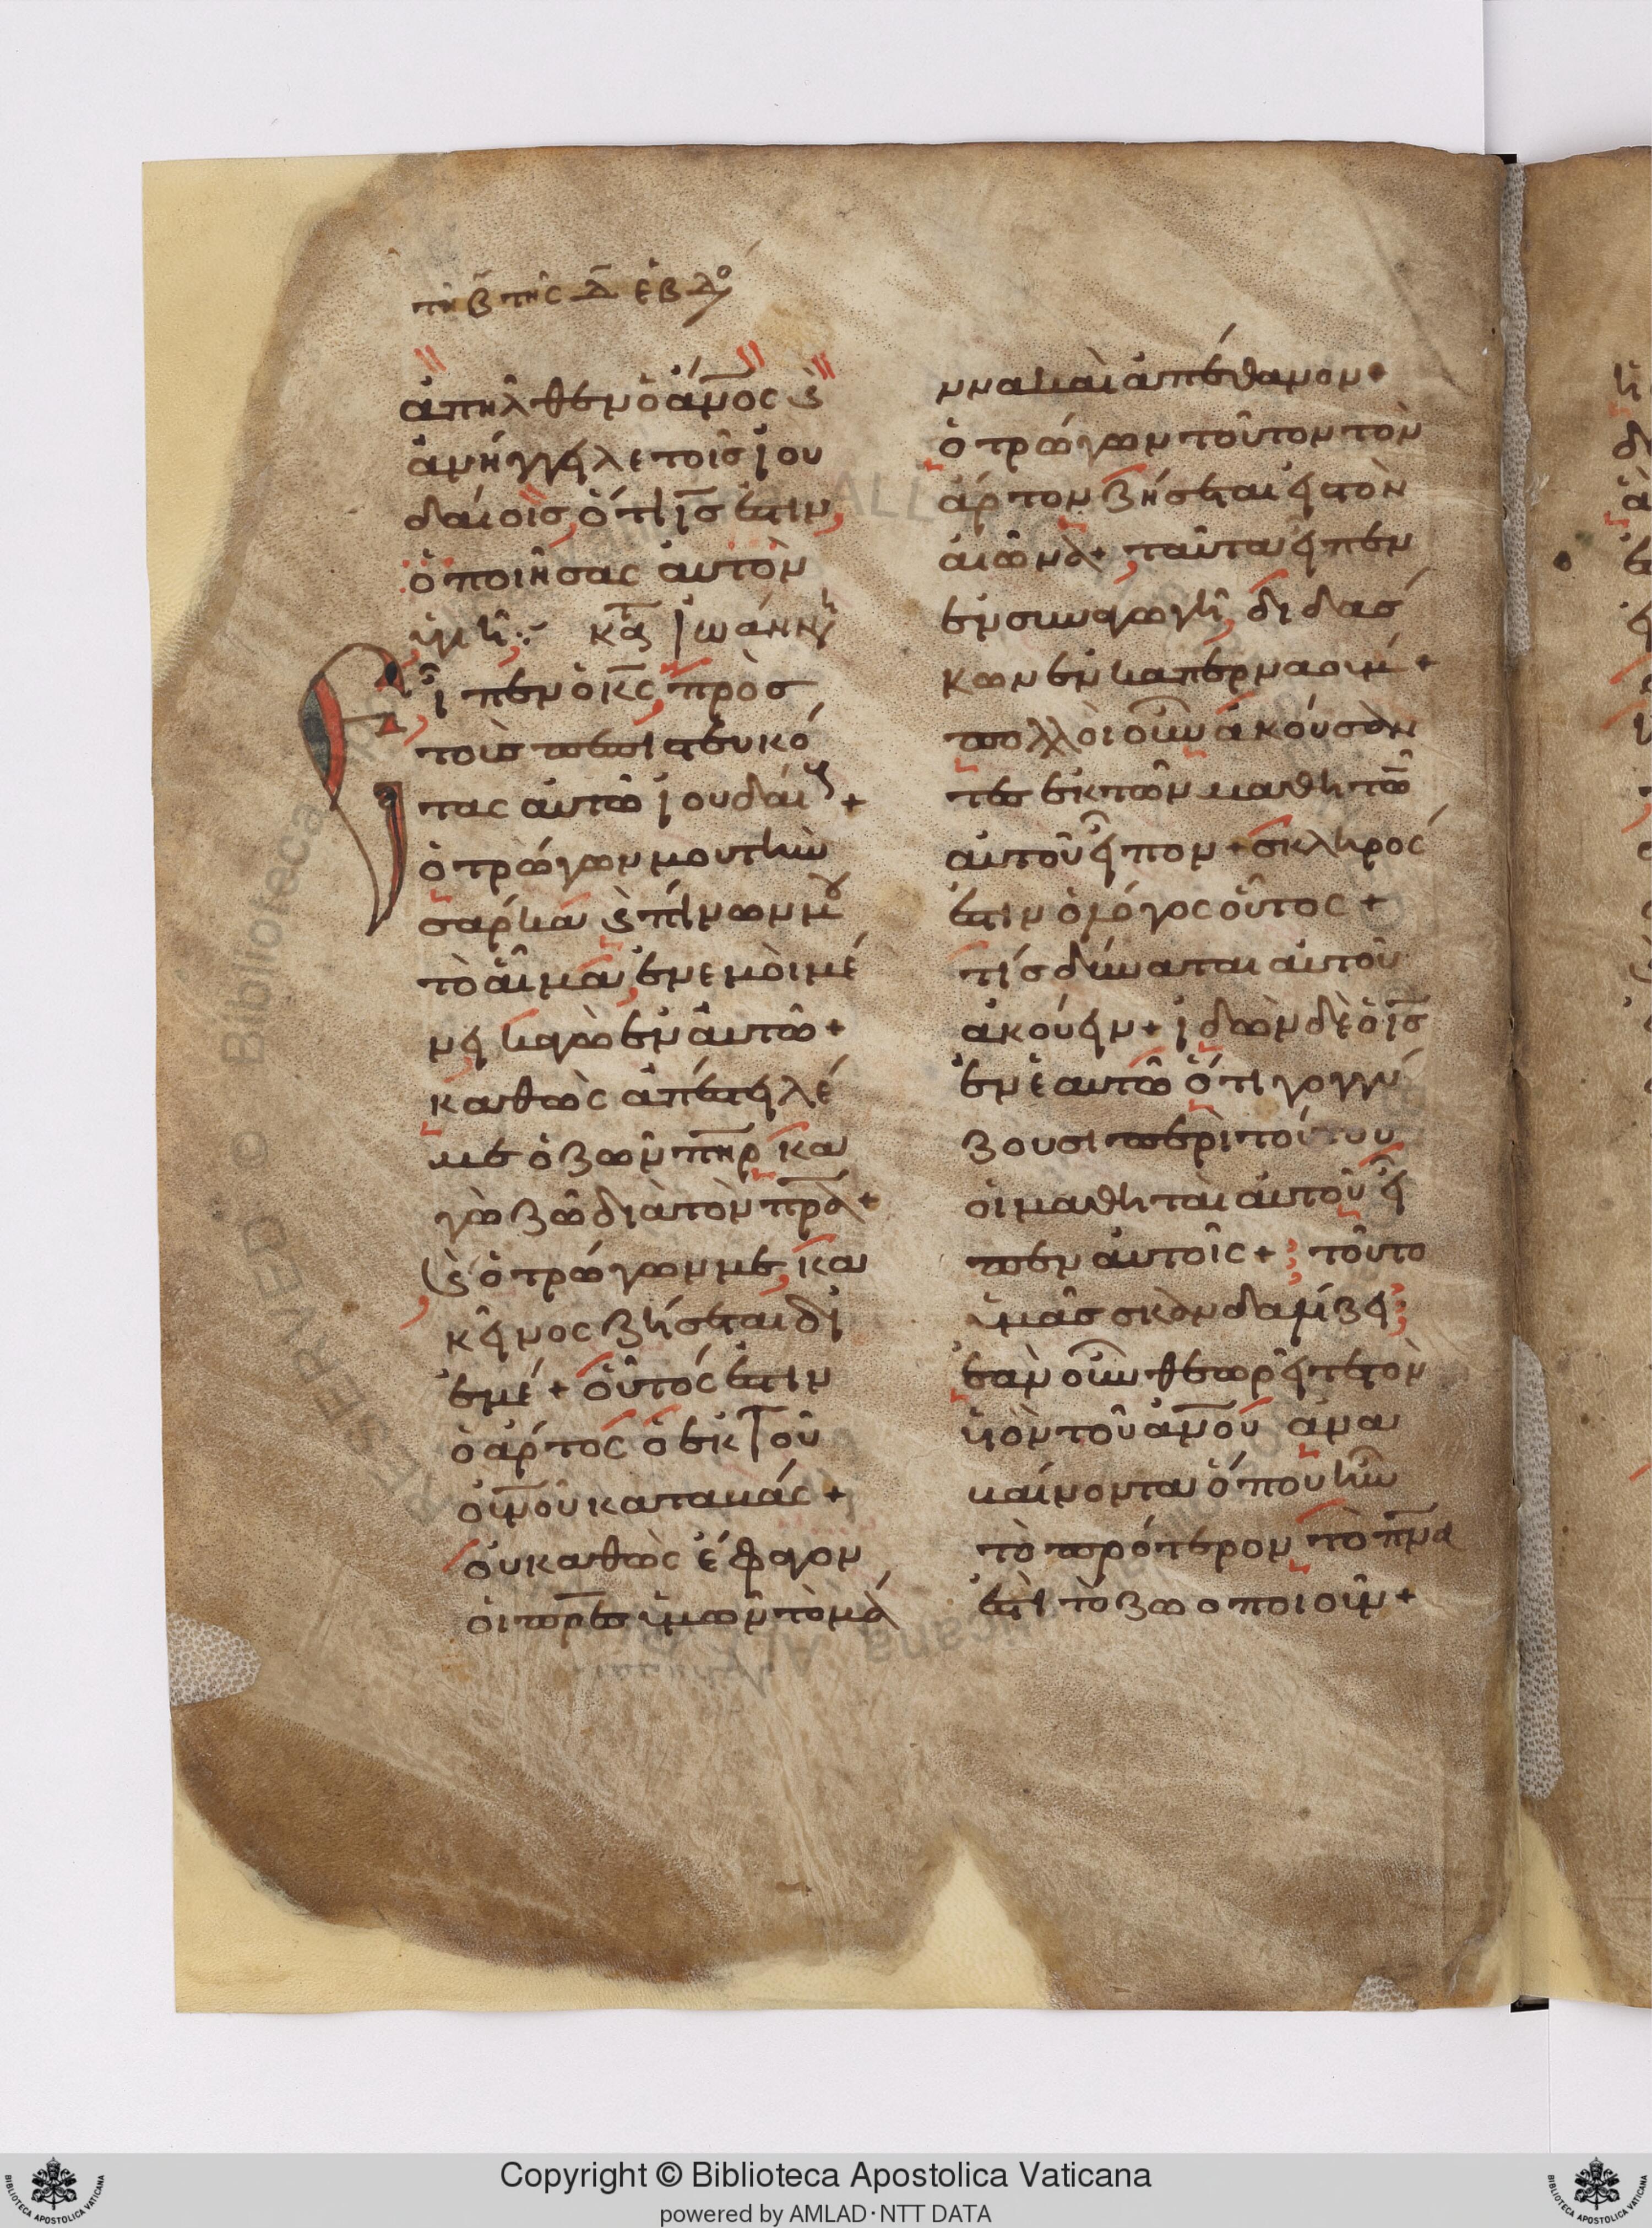 τῆ β̄ τῆς δ̄ ἐβδο
ἀπῆλθεν ὁ ἄνος ϗ
ἀνήγγειλε τοῖς ἰου
δαίοις, ὅτι ις ἐστιν,
ὁ ποιήσας αὐτὸν
ὑγιῆ κατ ἰωάννην
Εἶπεν ὁ κς, πρὸς
τοὺς πεπιστευκό
τας αὐτῶ ἰουδαί +
ὁ τρώγων μου τὴν
σάρκα ϗ πίνων μου
τὸ αἷμα, ἐν ἐμοὶ μέ
νει κἀγὼ ἐν αὐτῶ +
καθὼς ἀπέστειλέ
με ὁ ζῶν πηρ κα
γὼ ζῶ διὰ τὸν πρα +
ϗ ὁ τρώγων με, κα
κεῖνος ζήσεται δι
ἐμέ + οὗτός ἐστιν
ὁ ἄρτος ὁ ἐκ τοῦ
οὐνοῦ καταβάς +
οὐ καθὼς ἔφαγον
οἱ πρες ὑμῶν τὸ μά
ννα καὶ ἀπέθανον +
ὁ τρώγων τοῦτον τὸν
ἄρτον ζήσεται εἰς τὸν
αἰῶνα +, ταῦτα εἶπεν
ἐν συναγωγῆ, διδάσ
κων ἐν καπερναούμ +
πολλοὶ οὖν ἀκούσαν
τες ἐκ τῶν μαθητῶν
αὐτοῦ εἶπον + σκληρός
ἐστιν ὁ λόγος οὗτος +
τίς δύναται αὐτοῦ
ἀκούειν + ἰδὼν δὲ ὁ ις
ἐν ἑαυτῶ ὅτι γογγύ
ζουσι περὶ τούτου
οἱ μαθηταὶ αὐτοῦ εἶ
πεν αὐτοῖς + τοῦτο
ὑμᾶς σκανδαλίζει
ἐὰν οὖν θεωρεῖτε τὸν
υἱὸν τοῦ ἀνου ἀνα
βαίνοντα ὅπου ἦν
τὸ πρότερον τὸ πνα
ἐστι τὸ ζωοποιοῦν +
Copyright © Biblioteca Apostolica Vaticana
powered by AMLAD·NTT DATA